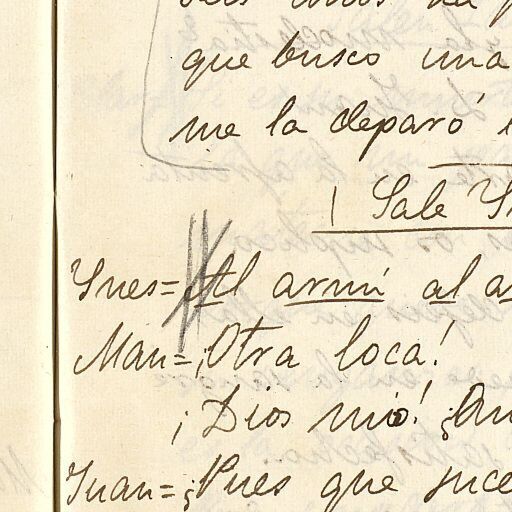 que busco una
me la deparó
( Sale
Ynes= Al armí al a
Man= ¡Otra loca!
¡Dios mio! ¿
Juan= ¿Pues que suce